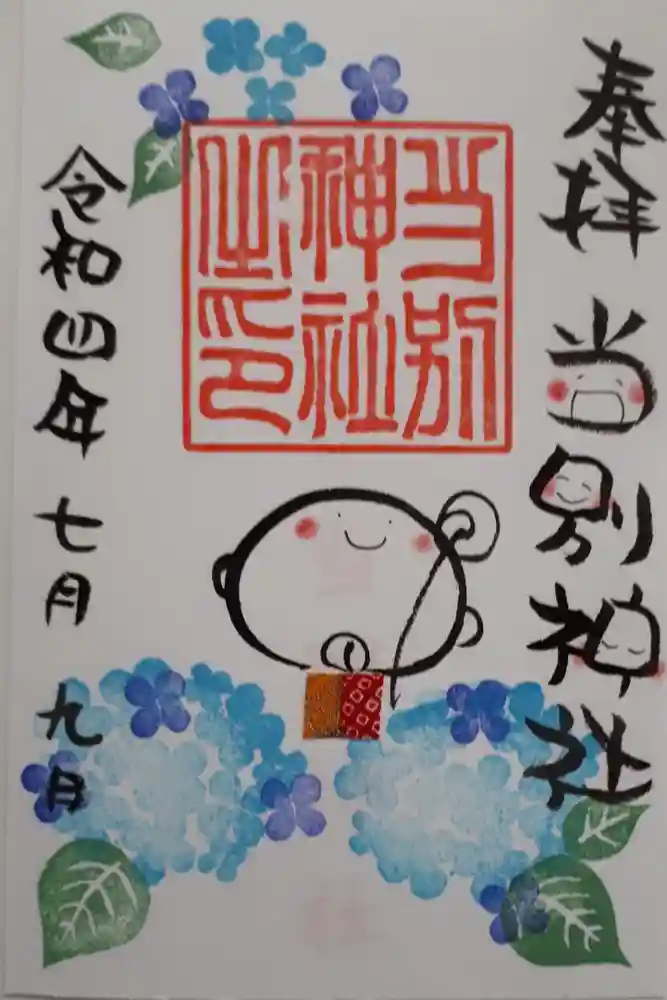 奉拝
当別神社
当別
神社
之印
令和四年七月九日